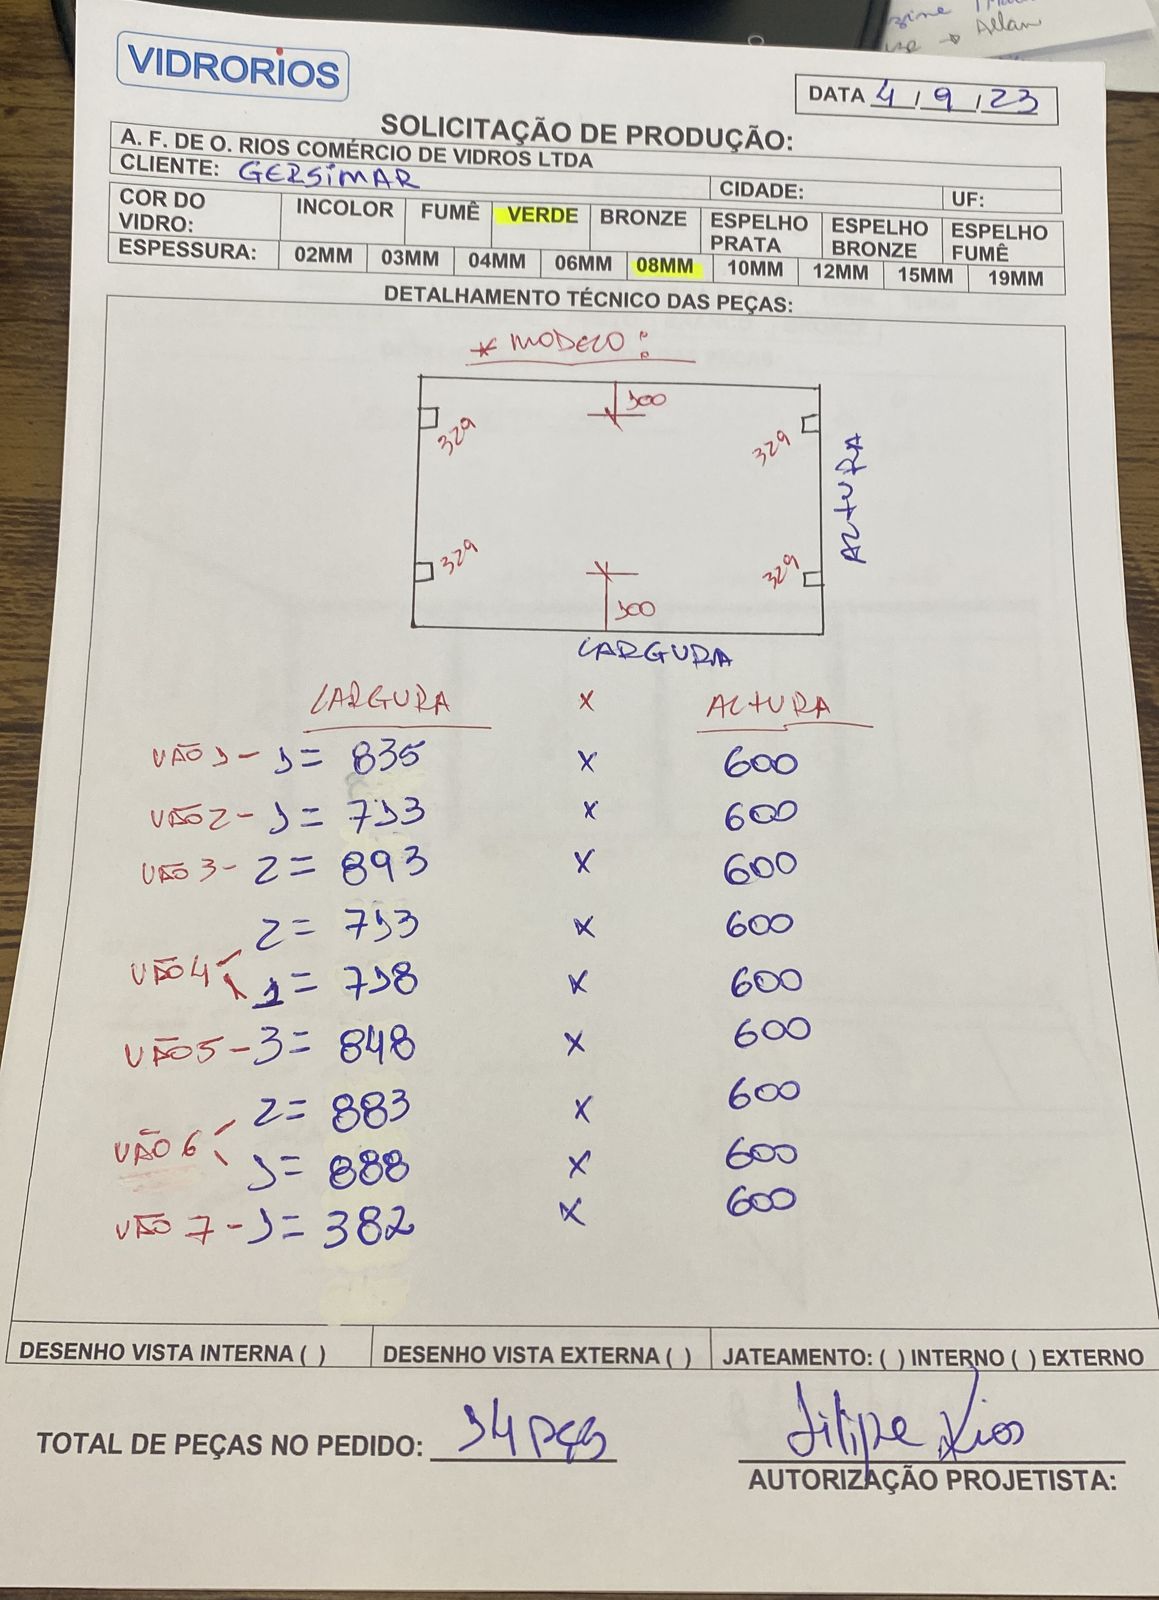 zine
Allan
VIDRORIOS
DATA 4 / 9 / 23
SOLICITAÇÃO DE PRODUÇÃO:
A. F. DE O. RIOS COMÉRCIO DE VIDROS LTDA
CLIENTE: GERSIMAR CIDADE: UF:
COR DO VIDRO: INCOLOR FUMÊ VERDE BRONZE ESPELHO PRATA ESPELHO BRONZE ESPELHO FUMÊ
ESPESSURA: 02MM 03MM 04MM 06MM 08MM 10MM 12MM 15MM 19MM
DETALHAMENTO TÉCNICO DAS PEÇAS:
* MODELO:
100
329 329
ALTURA
329 329
100
LARGURA
LARGURA x ALTURA
VÃO 1 - 1 = 835 x 600
VÃO 2 - 1 = 713 x 600
VÃO 3 - 2 = 893 x 600
2 = 713 x 600
VÃO 4
1 = 718 x 600
VÃO 5 - 3 = 848 x 600
2 = 883 x 600
VÃO 6
1 = 888 x 600
VÃO 7 - 1 = 382 x 600
DESENHO VISTA INTERNA ( ) DESENHO VISTA EXTERNA ( ) JATEAMENTO: ( ) INTERNO ( ) EXTERNO
TOTAL DE PEÇAS NO PEDIDO: 14 pçs Filipe Rios
AUTORIZAÇÃO PROJETISTA: